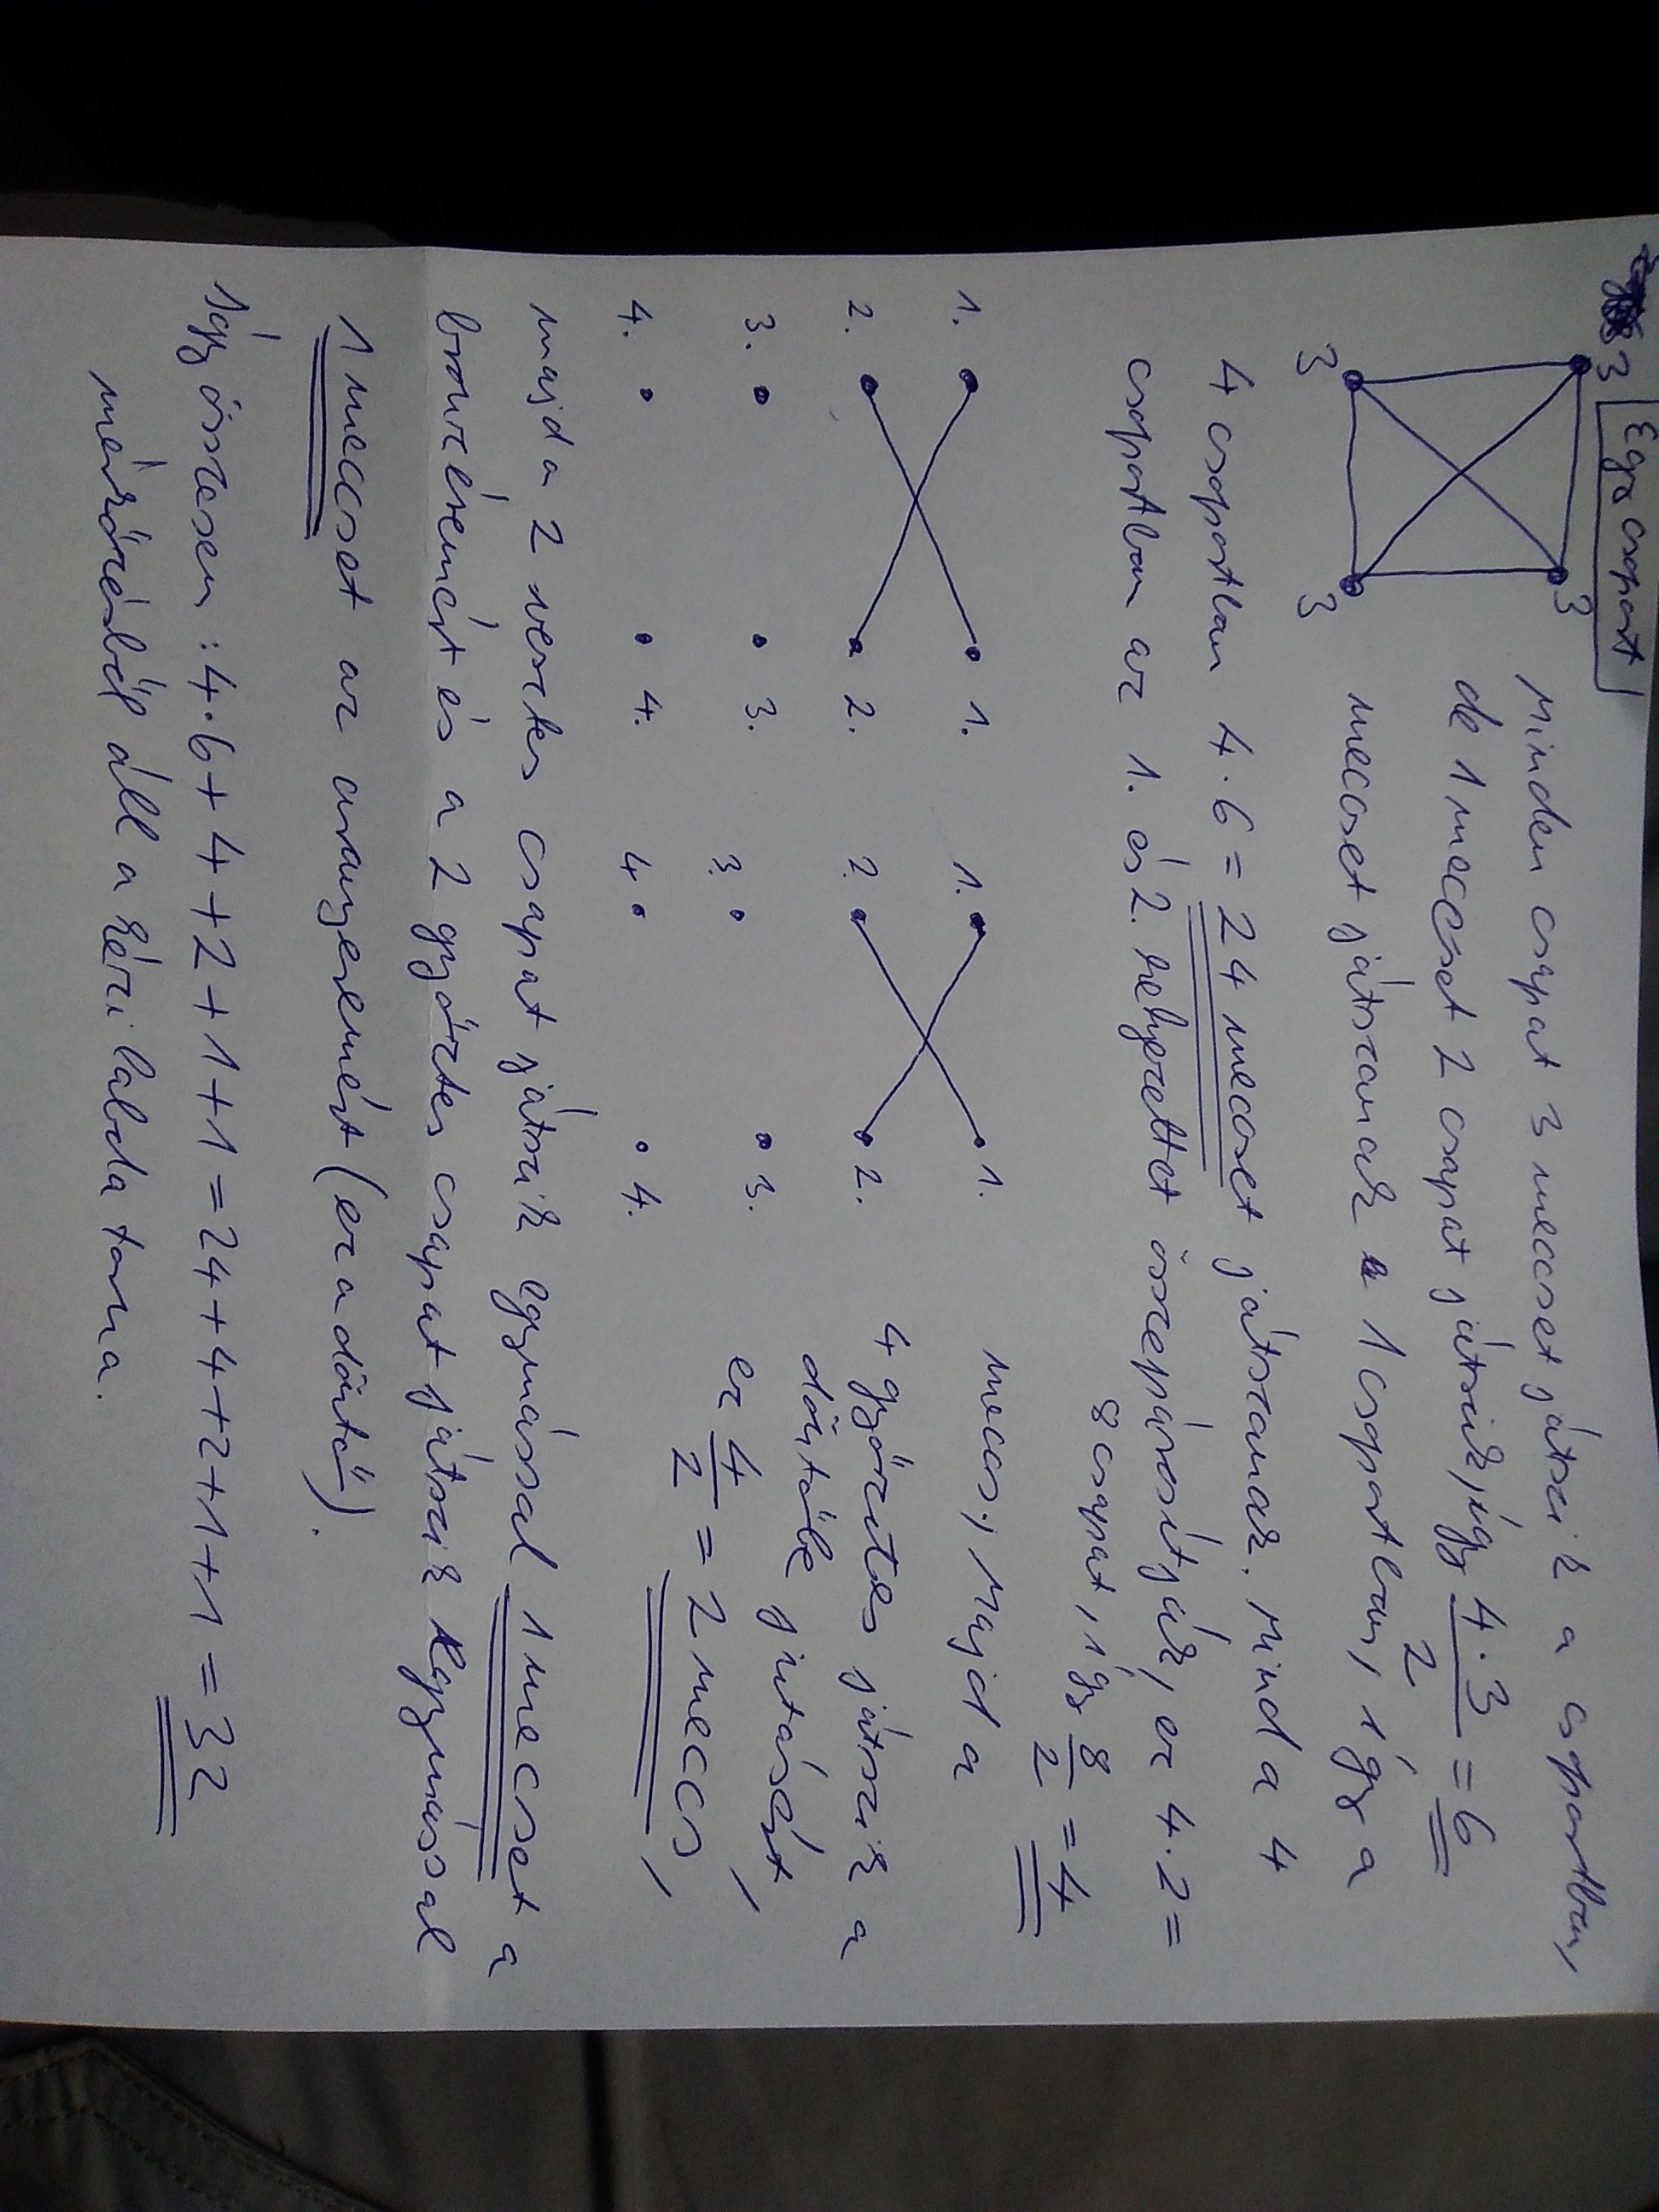 3 Egy csoport
3
3
3
Minden csapat 3 meccset játszik a csoportban,
de 1 meccset 2 csapat játszik, így 4·3/2 = 6
meccset játszanak 1 csoportban, így a
4 csoportban 4·6 = 24 meccset játszanak. Mind a 4
csoportban az 1. és 2. helyezettet összepárosítják, ez 4·2 =
8 csapat, így 8/2 = 4
1. 1. 1. 1.
2. 2. 2. 2.
3. 3. 3. 3.
4. 4. 4 4.
meccs, majd a
4 győztes játszik a
döntőbe jutásért,
ez 4/2 = 2 meccs,
majd a 2 vesztes csapat játszik egymással 1 meccset a
bronzéremért és a 2 győztes csapat játszik egymással
1 meccset az aranyéremért (ez a döntő).
Így összesen: 4·6+4+2+1+1=24+4+2+1+1=32
mérkőzésből áll a kézilabda torna.